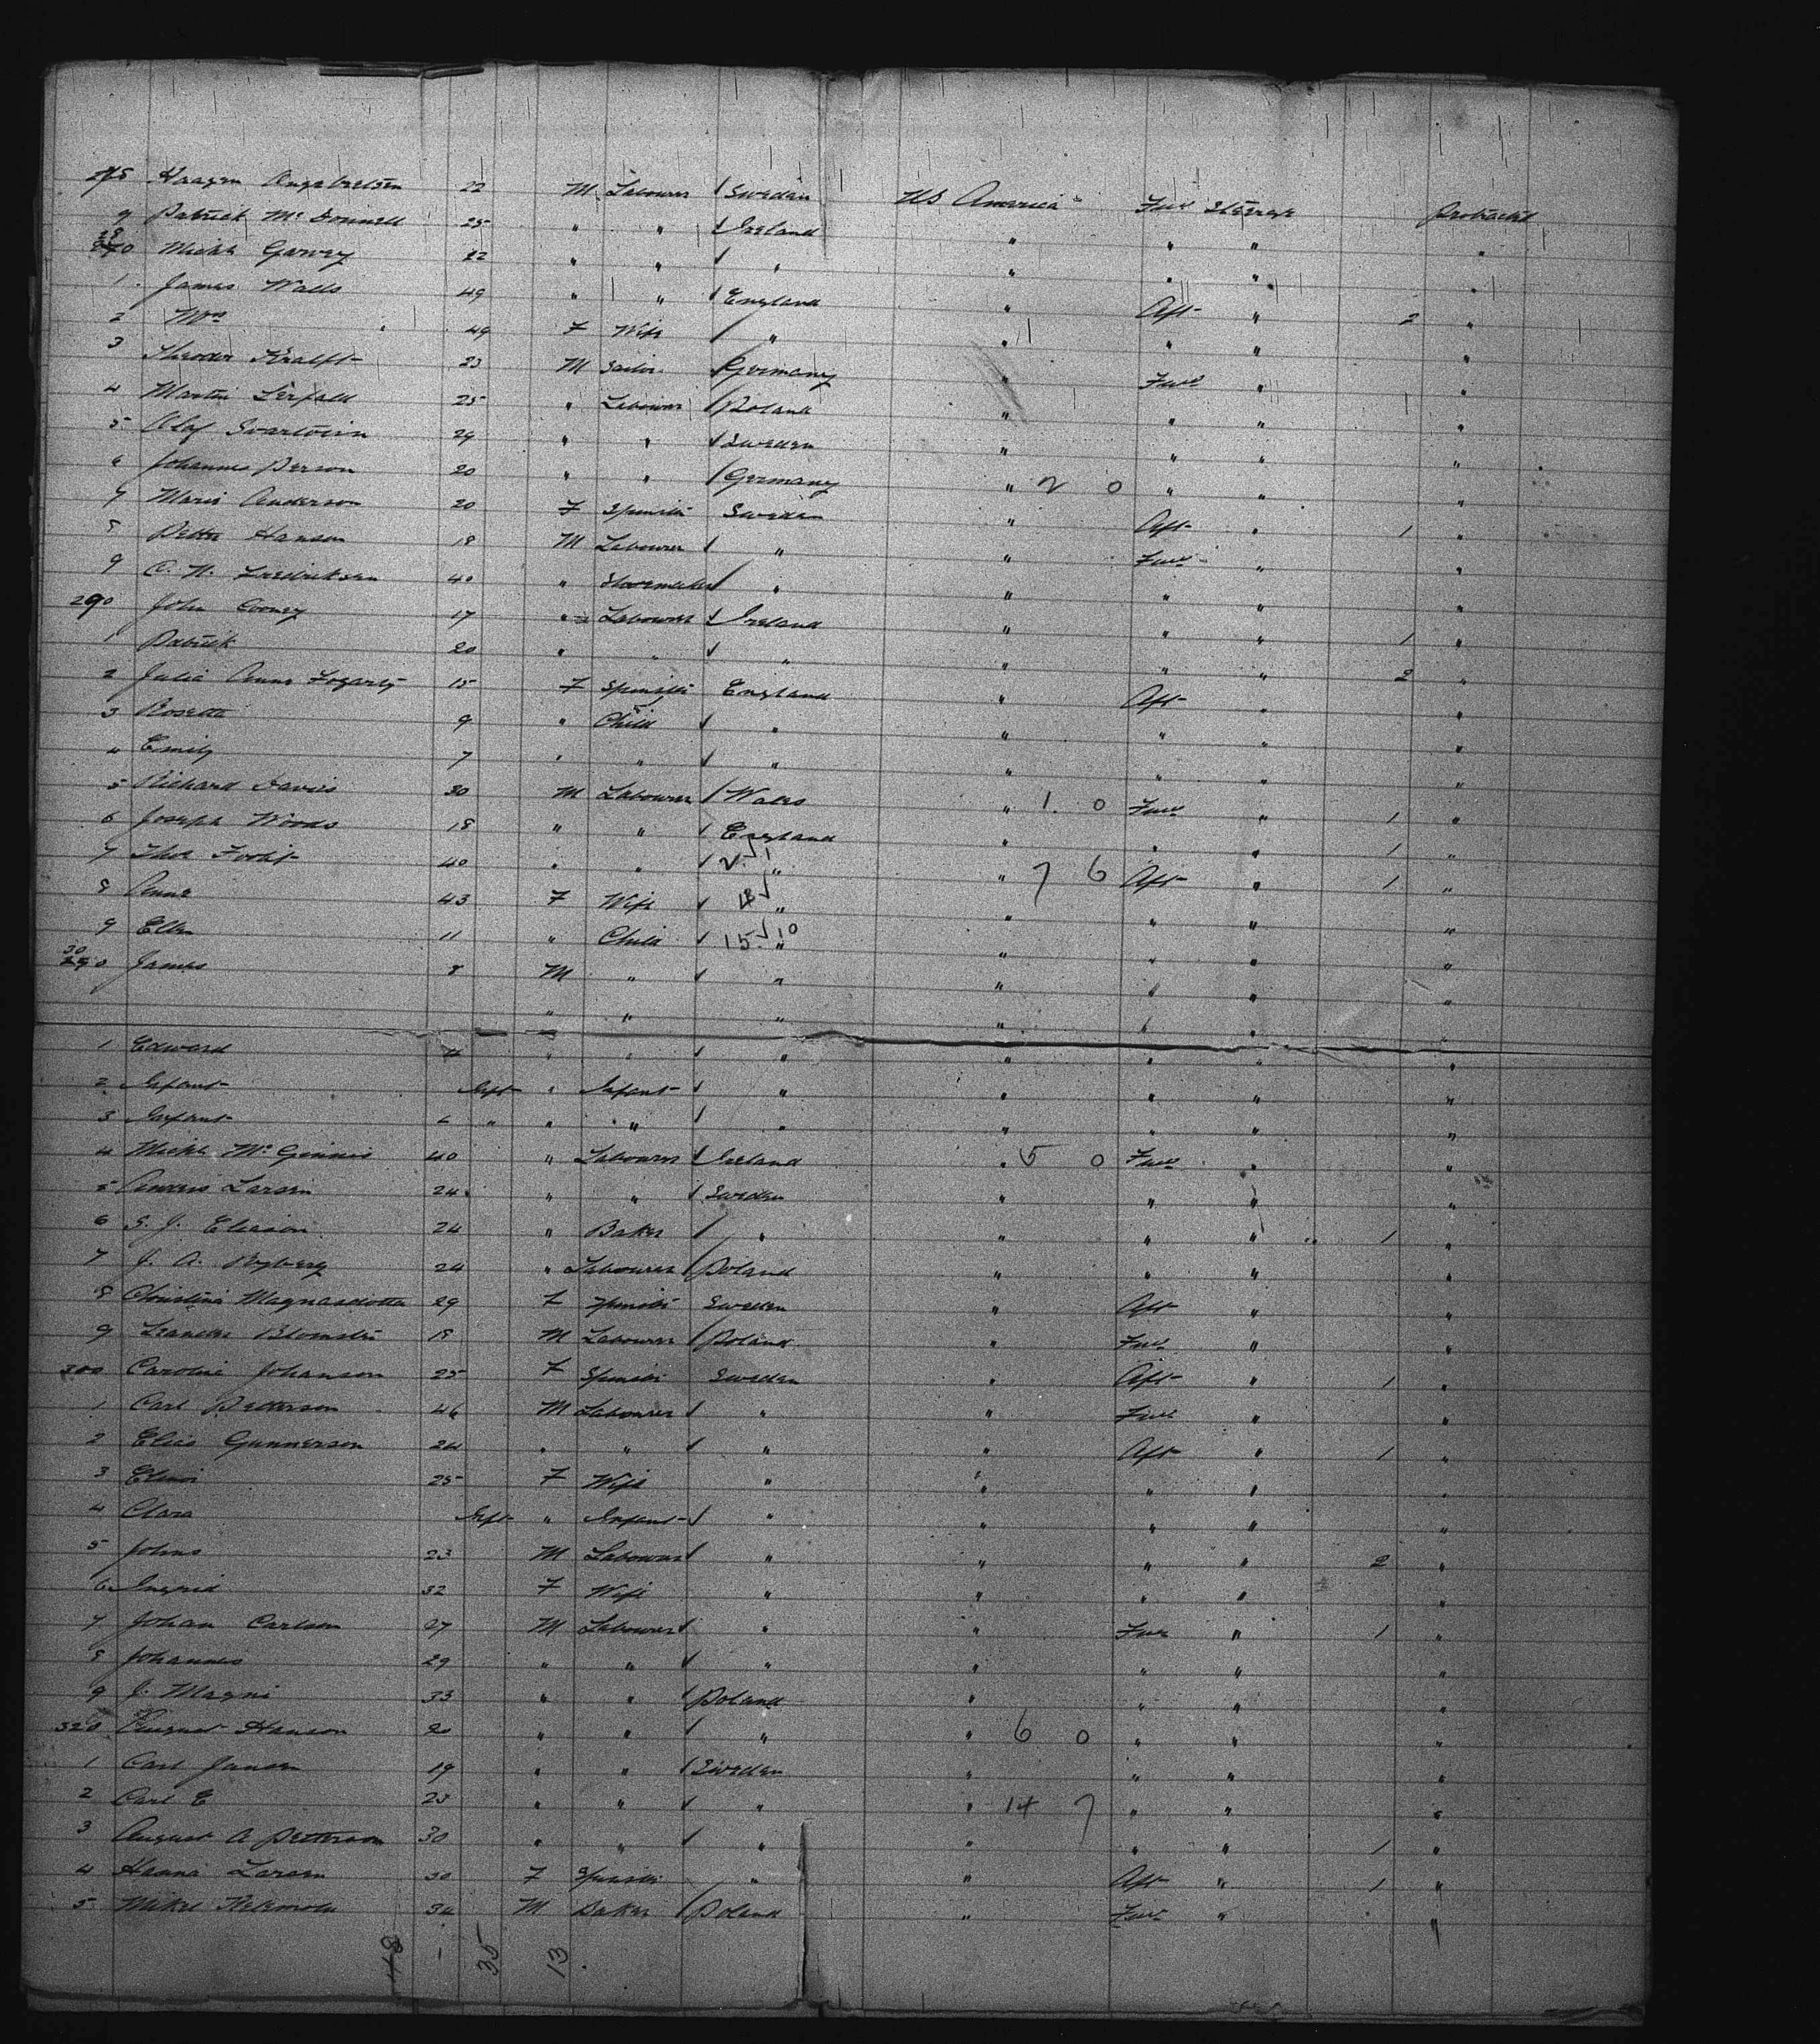 278 Haagen Engebretsen 22 M Labourer / Sweden US America Fwd Steerage Protracted
9 Patrick McDonnell 25 " " / Ireland " " " "
280 Michl Garvey 22 " " / " " " " "
1 James Walls 49 " " / England " Aft " 2 "
2 Mrs " 49 F Wife / " " " " "
3 Theodor Krafft 23 M Sailor / Germany " Fwd " "
4 Martin 25 " Labourer / Poland " " " "
5 Olaf 24 " " / Sweden " " " "
6 Johannes Person 20 " " / Germany " 2 0 " " "
7 Maria Anderson 20 F Spinster Sweden " Aft " 1 "
8 Petter Hanson 18 M Labourer / " " Fwd " "
9 C. N. Fredriksen 40 " Shoemaker / " " " " "
290 John Cooney 17 " Labourer / Ireland " " " 1 "
1 Patrick 20 " " / " " " " 2 "
2 Julia Anne Fogarty 15 F Spinster England " Aft " "
3 Rosetta 9 " Child / " " " " "
4 Emily 7 " " / " " " " "
5 Richard Davies 30 M Labourer / Wales " 1. 0 Fwd " 1 "
6 Joseph Woods 18 " " / England " " " 1 "
7 Thos 40 " " / 2. 1 " " 7 6 Aft " 1 "
8 Anne 43 F Wife / " " " " "
9 Ellen 11 " Child / 15. 10 " " " " "
300 James 8 M " / " " " " "
" " " " " " "
1 Edward 4 " " / " " " " "
2 Infant Inft " Infant / " " " " "
3 Infant 6 " " " / " " " " "
4 Michl McGinnis 40 " Labourer / Ireland " 5 0 Fwd " "
5 Anders Larsen 24 " " / Sweden " " " "
6 S. J. Eliason 24 " Baker / " " " " 1 "
7 J. A. Nyberg 24 " Labourer / Poland " " " "
8 Christina Magnasdotter 29 F Spinster Sweden " Aft " "
9 Leander 18 M Labourer / Poland " Fwd " "
300 Carolina Johanson 25 F Spinster Sweden " Aft " 1 "
1 Carl Petterson 46 M Labourer / " " Fwd " "
2 Elias Gunnerson 24 " " / " " Aft " 1 "
3 25 F Wife " " " " "
4 Clara Inft " Infant / " " " " "
5 Johns 23 M Labourer / " " " " 2 "
6 Ingrid 32 F Wife " " " " "
7 Johan Carlson 27 M Labourer / " " Fwd " 1 "
8 Johannes 29 " " / " " " " "
9 J. Magni 33 " " / Poland " " " "
320 August Hanson 20 " " / " " 6 0 " " "
1 Carl Jansen 19 " " / Sweden " " " "
2 Carl E 23 " " / " " 14 7 " " "
3 August A Petterson 30 " " / " " " " 1 "
4 Hanna Larsen 30 F Spinster " " Aft " 1 "
5 Mikel 34 M Baker / Poland " Fwd " "
48 1 35 13